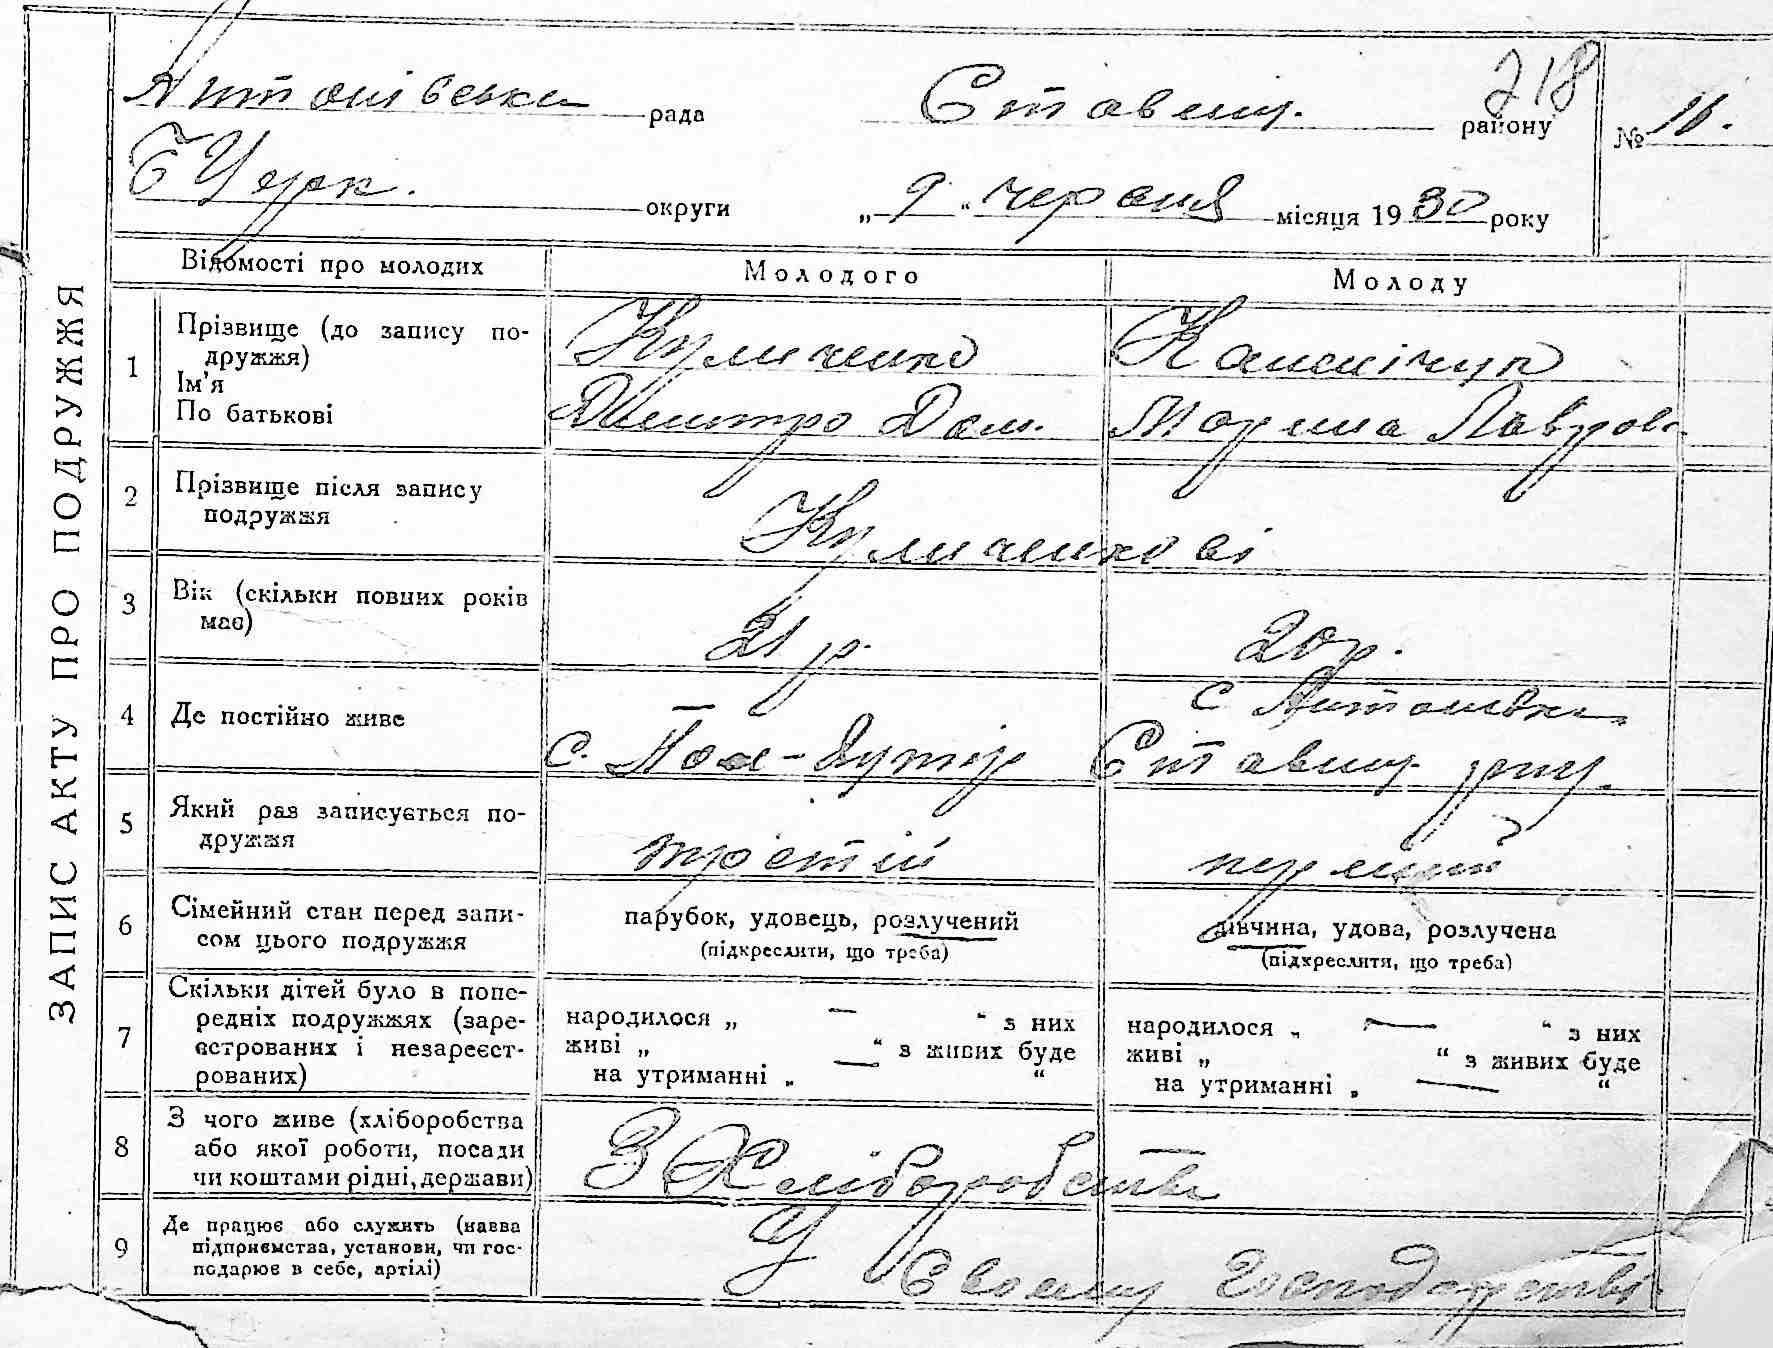 218
Антонівська рада Ставищ. району № 16.
БЦерк. округи „ 9 “ червня місяця 1930 року
ЗАПИС АКТУ ПРО ПОДРУЖЖЯ
Відомості про молодих Молодого Молоду
1 Прізвище (до запису по-
дружжя)
Ім'я
По батькові
Куличенко
Дмитро Дем.
Марина Лавров.
2 Прізвище після запису
подружжя
Куличенкові
3 Вік (скільки повних років
має)
21 р. 20 р.
4 Де постійно живе
с.
с Антонівка
Ставищ. рну.
5 Який раз записується по-
дружжя
третій перший
6 Сімейний стан перед запи-
сом цього подружжя
парубок, удовець, розлучений
(підкреслити, що треба)
дівчина, удова, розлучена
(підкреслити, що треба)
7 Скільки дітей було в попе-
редніх подружжях (заре-
єстрованих і незареєст-
рованих)
народилося „ — “ з них
живі „ — “ з живих буде
на утриманні „ “
народилося „ — “ з них
живі „ “ з живих буде
на утриманні „ — “
8 З чого живе (хліборобства
або якої роботи, посади
чи коштами рідні, держави)
З Хліборобства
9 Де працює або служить (назва
підприємства, установи, чи гос-
подарює в себе, артілі)
У Своему Господарстві